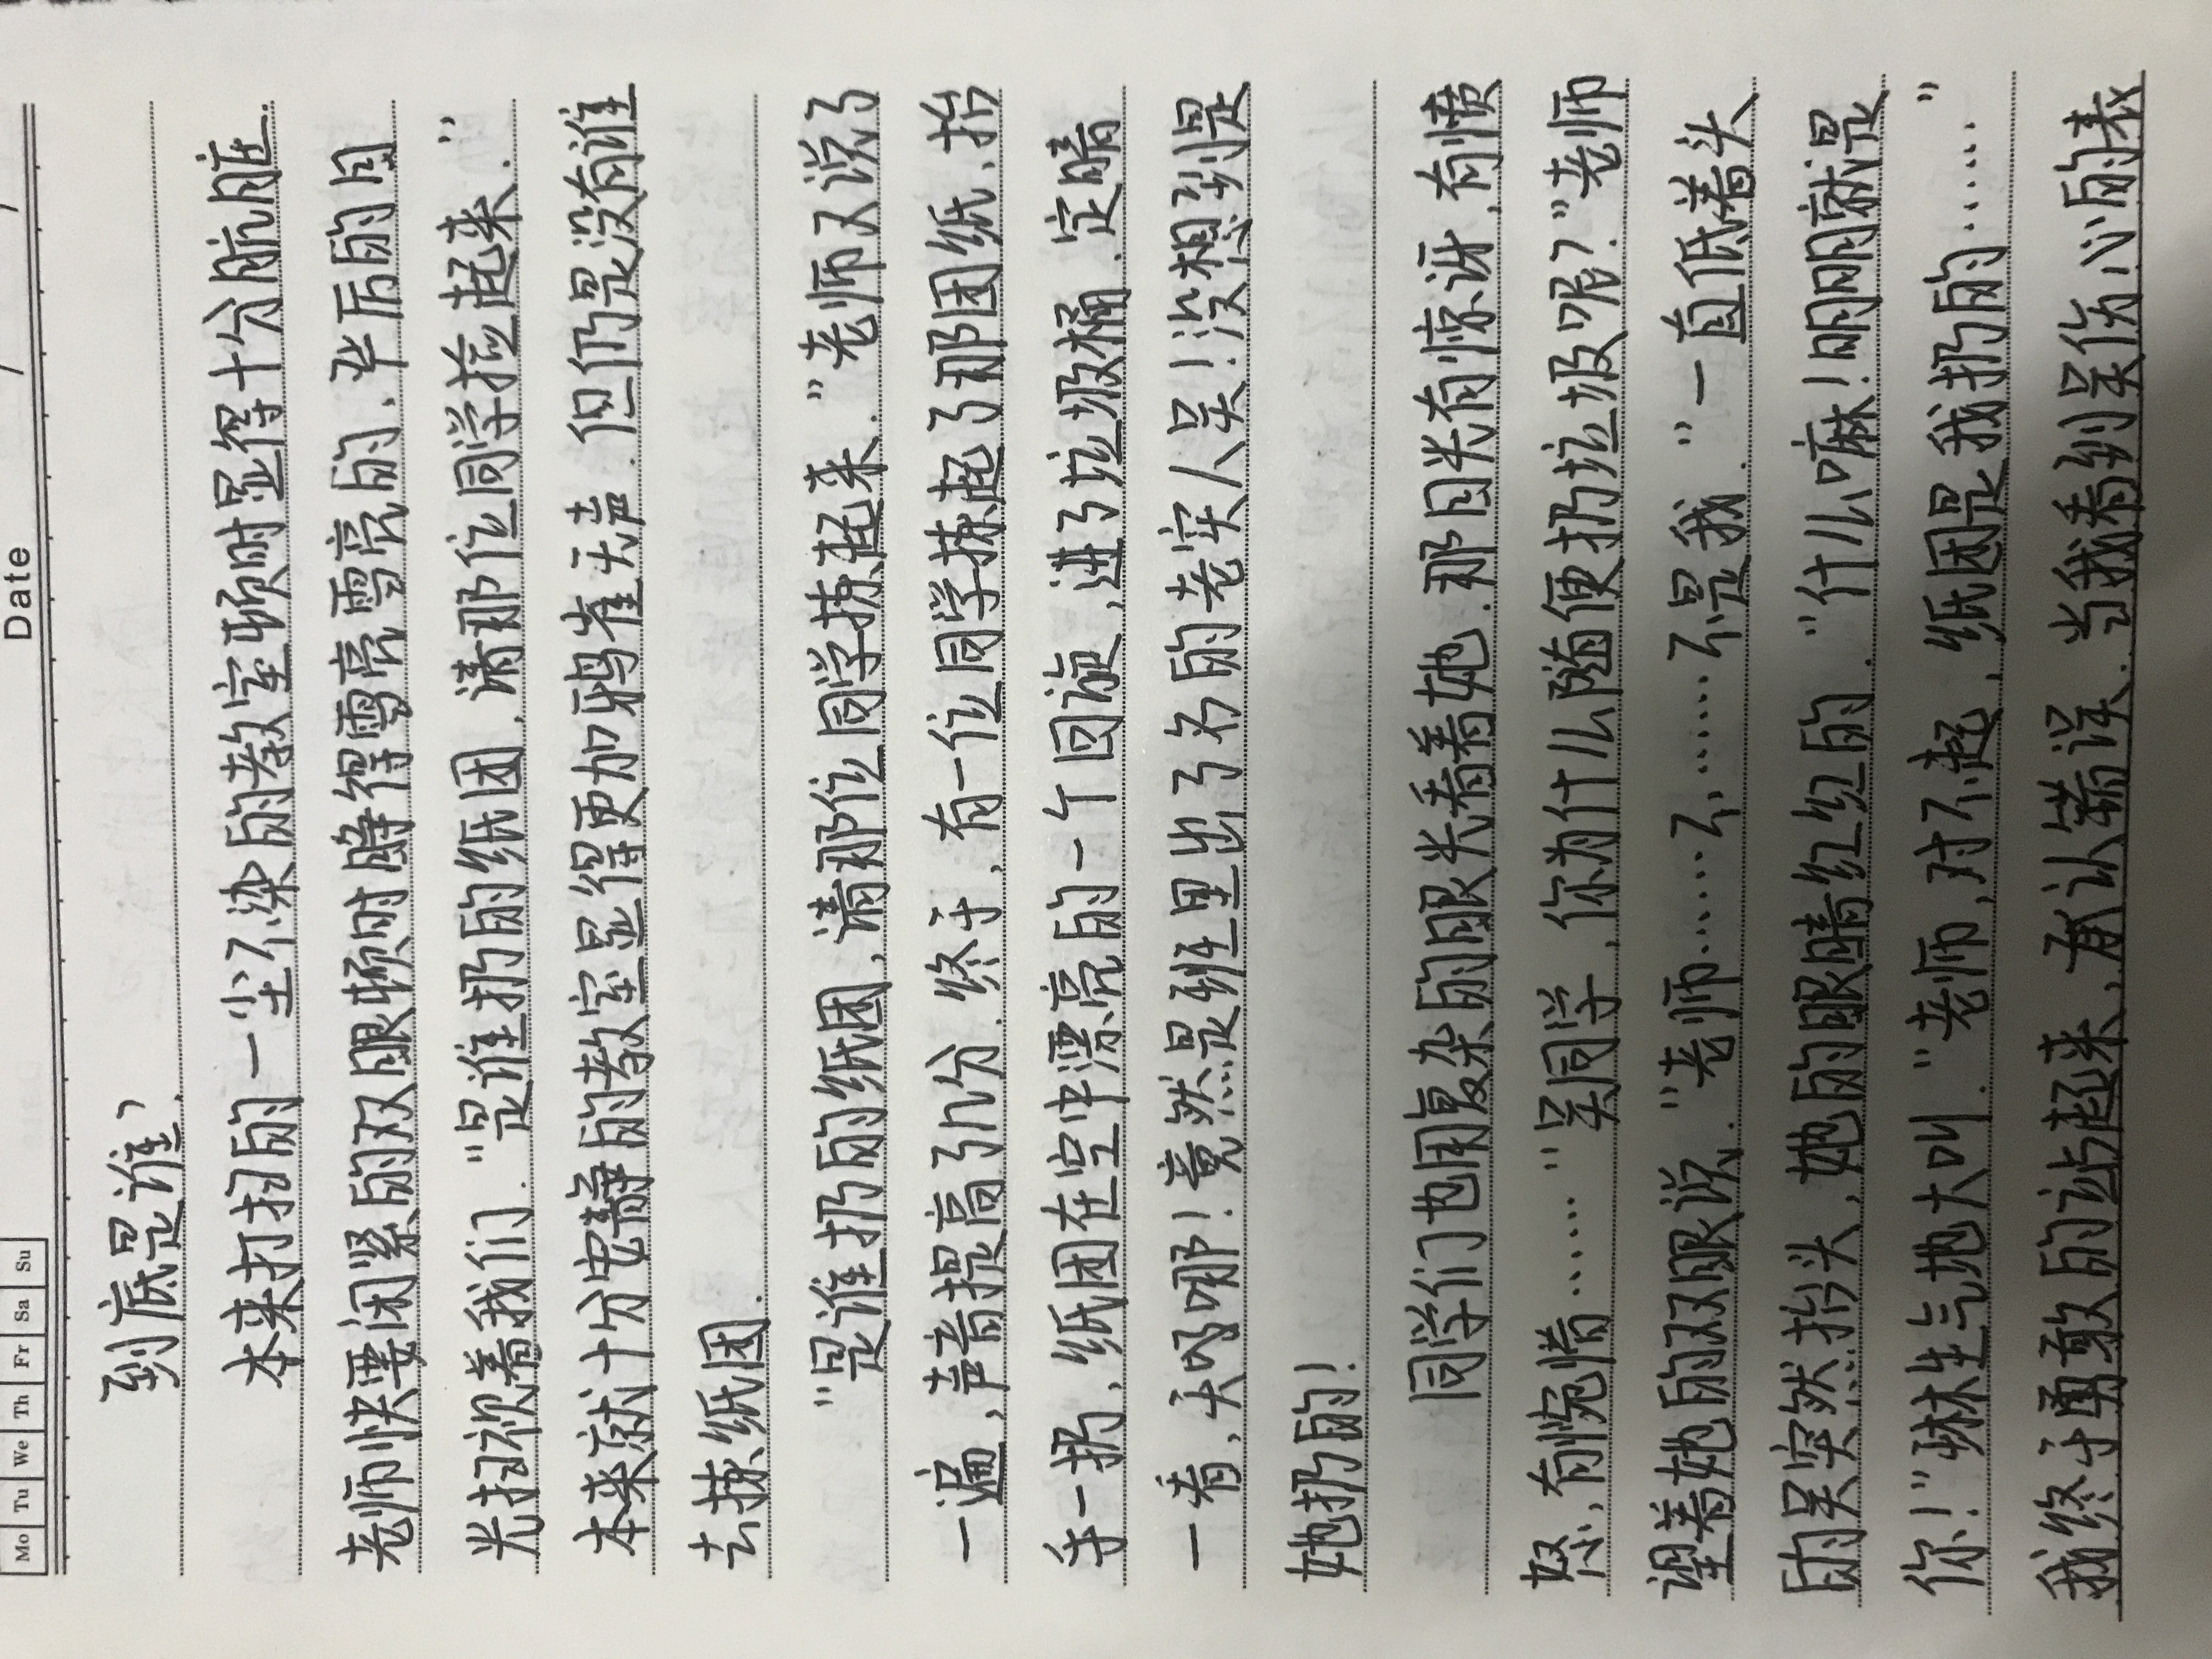 Mo Tu We Th Fr Sa Su
Date / /
到底是谁?
本来打扫的一尘不染的教室顿时显得十分肮脏.
老师快要闭紧的双眼顿时睁得雪亮雪亮的,严厉的目
光扫视着我们."是谁扔的纸团,请那位同学捡起来."
本来就十分安静的教室显得更加鸦雀无声.但仍是没有谁
去捡纸团.
"是谁扔的纸团,请那位同学捡起来."老师又说了
一遍,声音提高了几分.终于,有一位同学捡起了那团纸,抬
手一扔,纸团在空中漂亮的一个回旋,进了垃圾桶.定睛
一看,天呀哪!竟然是班里出了名的老实人吴!没想到是
她扔的!
同学们也用复杂的眼光看着她.那目光有惊讶,有愤
怒,有惋惜……"吴同学,你为什么随便扔垃圾呢?"老师
望着她的双眼说."老师……不,……不是我."一直低着头
的吴突然抬头,她的眼睛红红的."什么嘛!明明就是
你!"妹生气地大叫."老师,对不起,纸团是我扔的……"
我终于勇敢的站起来,承认错误.当我看到吴伤心的表